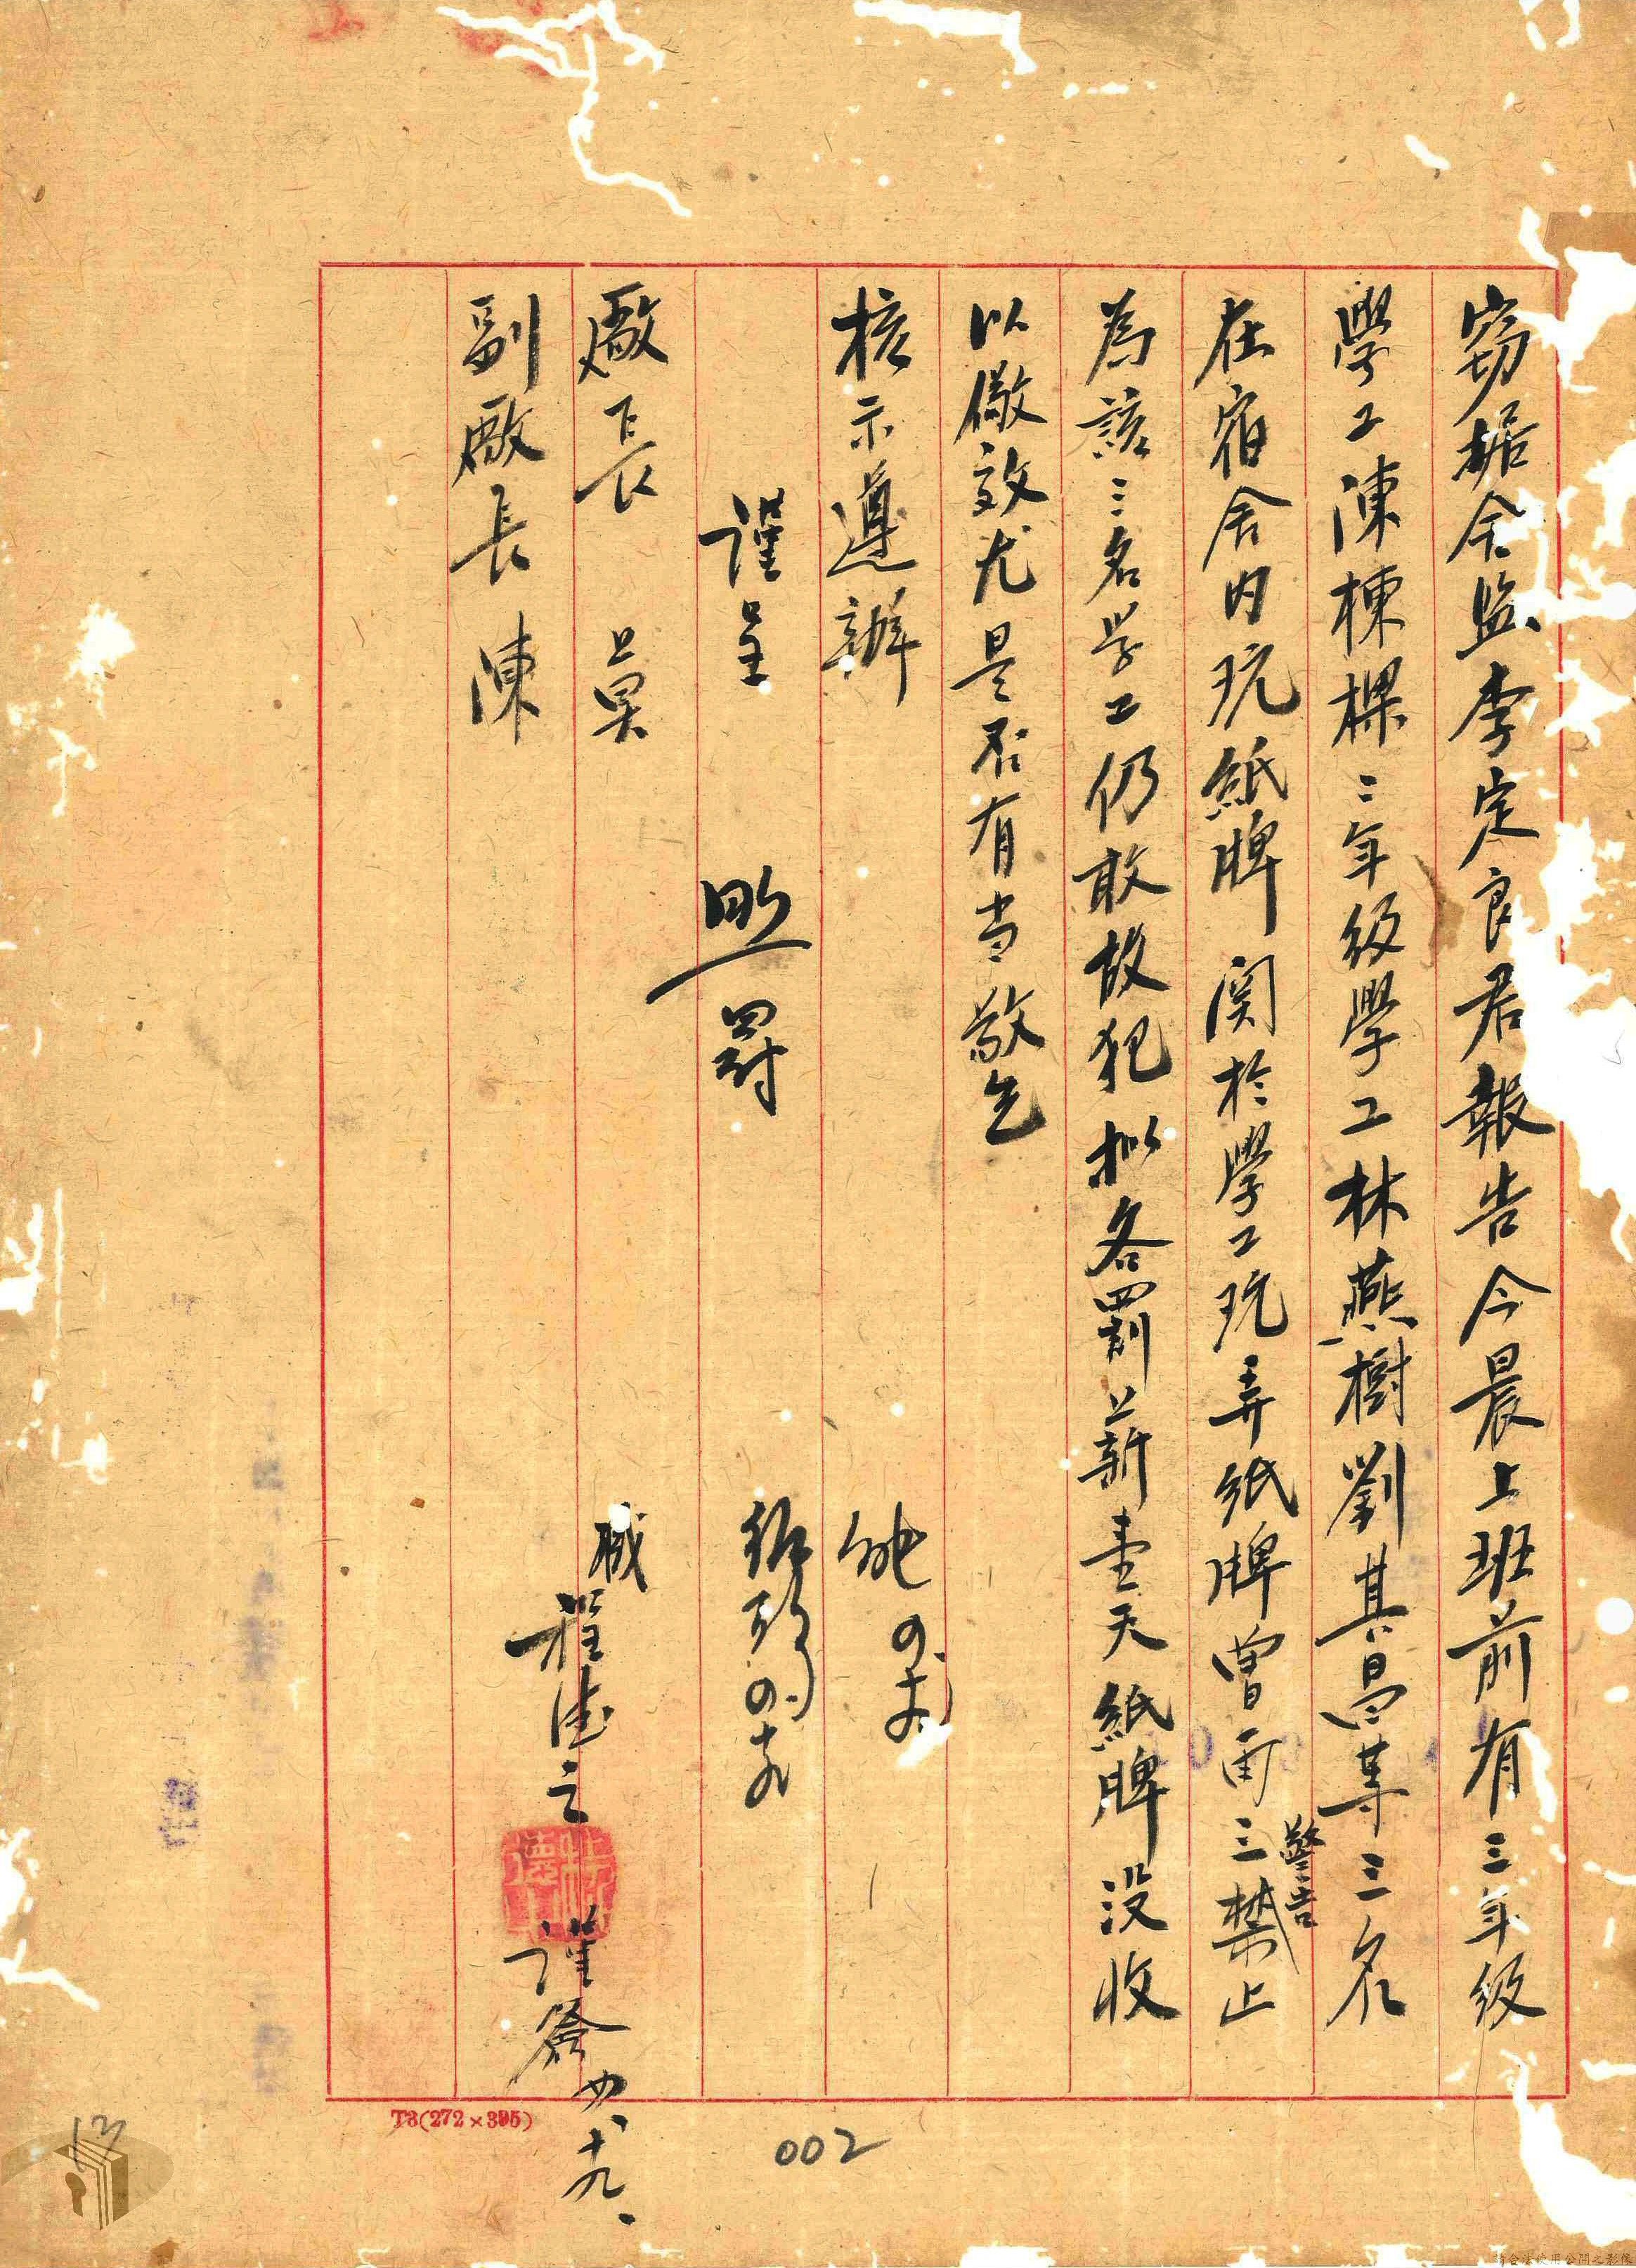 窃据舍監李定良君報告今晨上班前有三年級
學工陳棟樑二年級學工林燕樹劉其昌等三名
在宿舍内玩紙牌関於學工玩弄紙牌曾再三禁止
警告
為該三名学工仍敢故犯拟各罰薪壹天紙牌没收
以儆效尤是否有当敬乞
核示遵辦
謹呈
廠長莫
副廠長陳
照罰
職程德之
謹簽
十九、
T3(272×395)
002
13